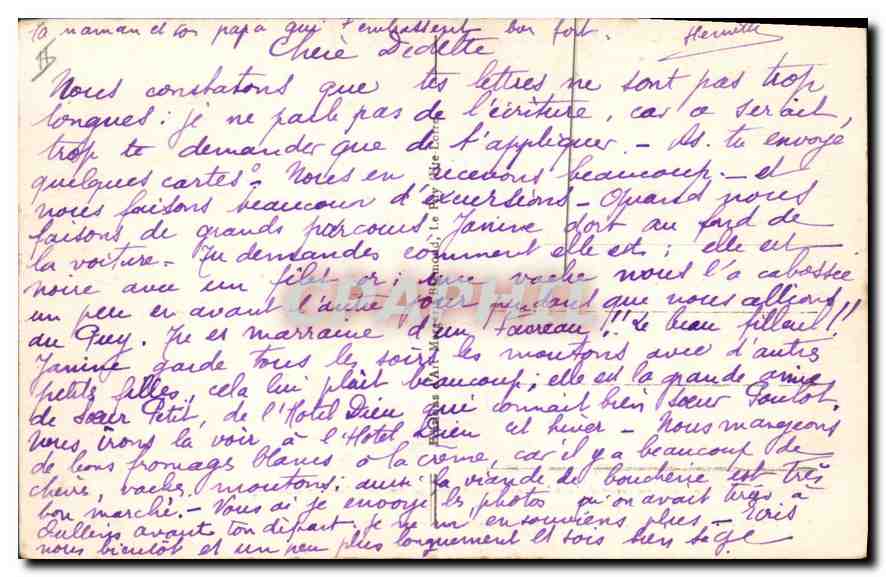 ta maman et ton papa qui t'embrassent bien fort.
Chère Dedette
Nous constatons que tes lettres ne sont pas trop
longues; je ne parle pas de l'écriture, car ce serait
trop te demander que de t'appliquer - As-tu envoyé
quelques cartes? Nous en recevons beaucoup - et
nous faisons beaucoup d'excursions - Quand nous
faisons de grands parcours, Janine dort au fond de
la voiture - Tu demandes comment elle est; elle est
noire avec un filet or; une vache nous l'a cabossée
un peu en avant l'autre jour pendant que nous allions
du Puy. Tu es marraine d'un taureau!! Le beau filleul!!
Janine garde tous les soirs les moutons avec d'autres
petites filles, cela lui plait beaucoup; elle est la grande amie
de Sœur Petit, de l'Hotel Dieu qui connait bien Sœur Poutot.
Nous irons la voir à l'Hotel Dieu cet hiver - Nous mangeons
de bons fromages blancs à la crème, car il y a beaucoup de
chèvres, vaches, moutons; aussi la viande de boucherie est très
bon marché - Vous ai je envoyé les photos qu'on avait tirées à
Oullins avant ton départ. je ne m'en souviens plus - Ecris
nous bientôt et un peu plus longuement et sois bien sage
CPAPHIL